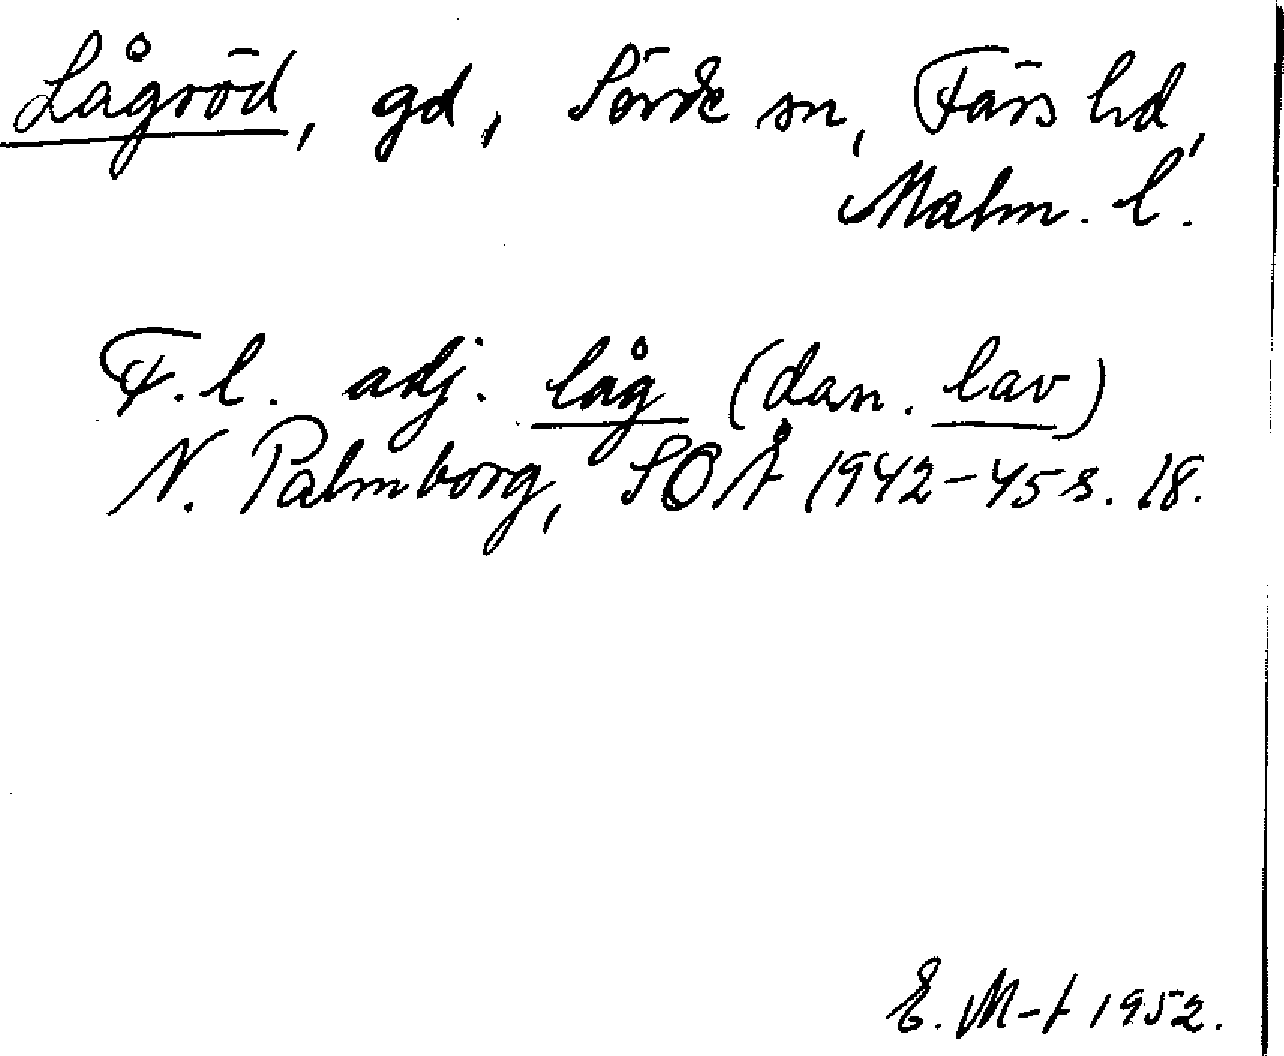 Lågröd, gd, Sövde sn, Färs hd,
Malm. l.
F. l. adj. låg (dan. lav)
N. Palmborg, SOÅ 1942-45 s. 18.
E. M-t 1952.